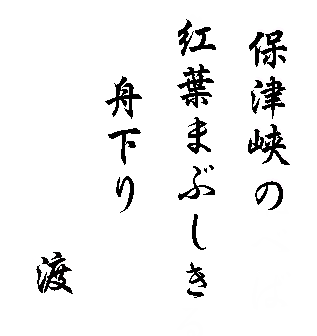 保津峡の
紅葉まぶしき
舟下り
渡